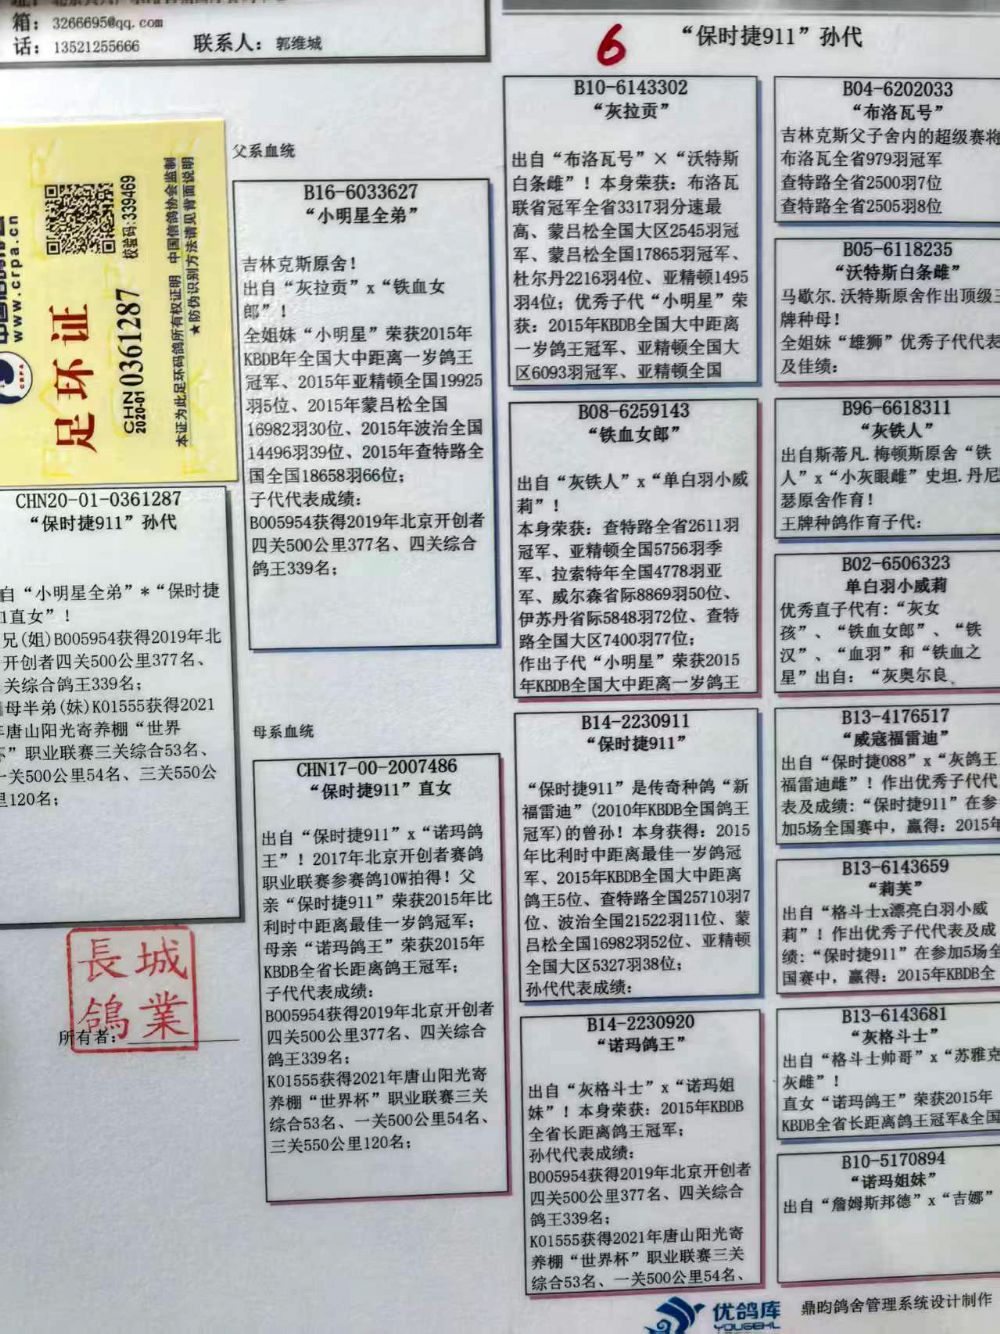 箱：3266695@qq.com
话：13521255666 联系人：郭维城
6
“保时捷911”孙代
www.crpa.cn
足环证
CHN 0361287
2020-01
校验码:339469
本证为此足环码鸽所有权证明 中国信鸽协会监制
★防伪识别方法请见背面说明
CHN20-01-0361287
“保时捷911”孙代
自“小明星全弟”*“保时捷
1直女”！
兄(姐)B005954获得2019年北
开创者四关500公里377名、
关综合鸽王339名；
母半弟(妹)K01555获得2021
唐山阳光寄养棚“世界
杯”职业联赛三关综合53名、
一关500公里54名、三关550公
里120名；
長城
鴿業
所有者：
父系血统
B16-6033627
“小明星全弟”
吉林克斯原舍！
出自“灰拉贡”x“铁血女
郎”！
全姐妹“小明星”荣获2015年
KBDB年全国大中距离一岁鸽王
冠军、2015年亚精顿全国19925
羽5位、2015年蒙吕松全国
16982羽30位、2015年波治全国
14496羽39位、2015年查特路全
国全国18658羽66位；
子代代表成绩：
B005954获得2019年北京开创者
四关500公里377名、四关综合
鸽王339名；
母系血统
CHN17-00-2007486
“保时捷911”直女
出自“保时捷911”x“诺玛鸽
王”！2017年北京开创者赛鸽
职业联赛参赛鸽10W拍得！父
亲“保时捷911”荣获2015年比
利时中距离最佳一岁鸽冠军；
母亲“诺玛鸽王”荣获2015年
KBDB全省长距离鸽王冠军；
子代代表成绩：
B005954获得2019年北京开创者
四关500公里377名、四关综合
鸽王339名；
K01555获得2021年唐山阳光寄
养棚“世界杯”职业联赛三关
综合53名、一关500公里54名、
三关550公里120名；
B10-6143302
“灰拉贡”
出自“布洛瓦号”×“沃特斯
白条雌”！本身荣获：布洛瓦
联省冠军全省3317羽分速最
高、蒙吕松全国大区2545羽冠
军、蒙吕松全国17865羽冠军、
杜尔丹2216羽4位、亚精顿1495
羽4位；优秀子代“小明星”荣
获：2015年KBDB全国大中距离
一岁鸽王冠军、亚精顿全国大
区6093羽冠军、亚精顿全国
B08-6259143
“铁血女郎”
出自“灰铁人”x“单白羽小威
莉”！
本身荣获：查特路全省2611羽
冠军、亚精顿全国5756羽季
军、拉索特年全国4778羽亚
军、威尔森省际8869羽50位、
伊苏丹省际5848羽72位、查特
路全国大区7400羽77位；
作出子代“小明星”荣获2015
年KBDB全国大中距离一岁鸽王
B14-2230911
“保时捷911”
“保时捷911”是传奇种鸽“新
福雷迪”(2010年KBDB全国鸽王
冠军)的曾孙！本身获得：2015
年比利时中距离最佳一岁鸽冠
军、2015年KBDB全国大中距离
鸽王5位、查特路全国25710羽7
位、波治全国21522羽11位、蒙
吕松全国16982羽52位、亚精顿
全国大区5327羽38位；
孙代代表成绩：
B14-2230920
“诺玛鸽王”
出自“灰格斗士”x“诺玛姐
妹”！本身荣获：2015年KBDB
全省长距离鸽王冠军；
孙代代表成绩：
B005954获得2019年北京开创者
四关500公里377名、四关综合
鸽王339名；
K01555获得2021年唐山阳光寄
养棚“世界杯”职业联赛三关
综合53名、一关500公里54名、
B04-6202033
“布洛瓦号”
吉林克斯父子舍内的超级赛将
布洛瓦全省979羽冠军
查特路全省2500羽7位
查特路全省2505羽8位
B05-6118235
“沃特斯白条雌”
马歇尔.沃特斯原舍作出顶级王
牌种母！
全姐妹“雄狮”优秀子代代表
及佳绩：
B96-6618311
“灰铁人”
出自斯蒂凡.梅顿斯原舍“铁
人”x“小灰眼雌”史坦.丹尼
瑟原舍作育！
王牌种鸽作育子代：
B02-6506323
单白羽小威莉
优秀直子代有：“灰女
孩”、“铁血女郎”、“铁
汉”、“血羽”和“铁血之
星”出自：“灰奥尔良
B13-4176517
“威寇福雷迪”
出自“保时捷088”x“灰鸽王
福雷迪雌”！作出优秀子代代
表及成绩：“保时捷911”在参
加5场全国赛中，赢得：2015年
B13-6143659
“莉芙”
出自“格斗士x漂亮白羽小威
莉”！作出优秀子代代表及成
绩：“保时捷911”在参加5场全
国赛中，赢得：2015年KBDB全
B13-6143681
“灰格斗士”
出自“格斗士帅哥”x“苏雅克
灰雌”！
直女“诺玛鸽王”荣获2015年
KBDB全省长距离鸽王冠军&全国
B10-5170894
“诺玛姐妹”
出自“詹姆斯邦德”x“吉娜”
优鸽库
鼎昀鸽舍管理系统设计制作